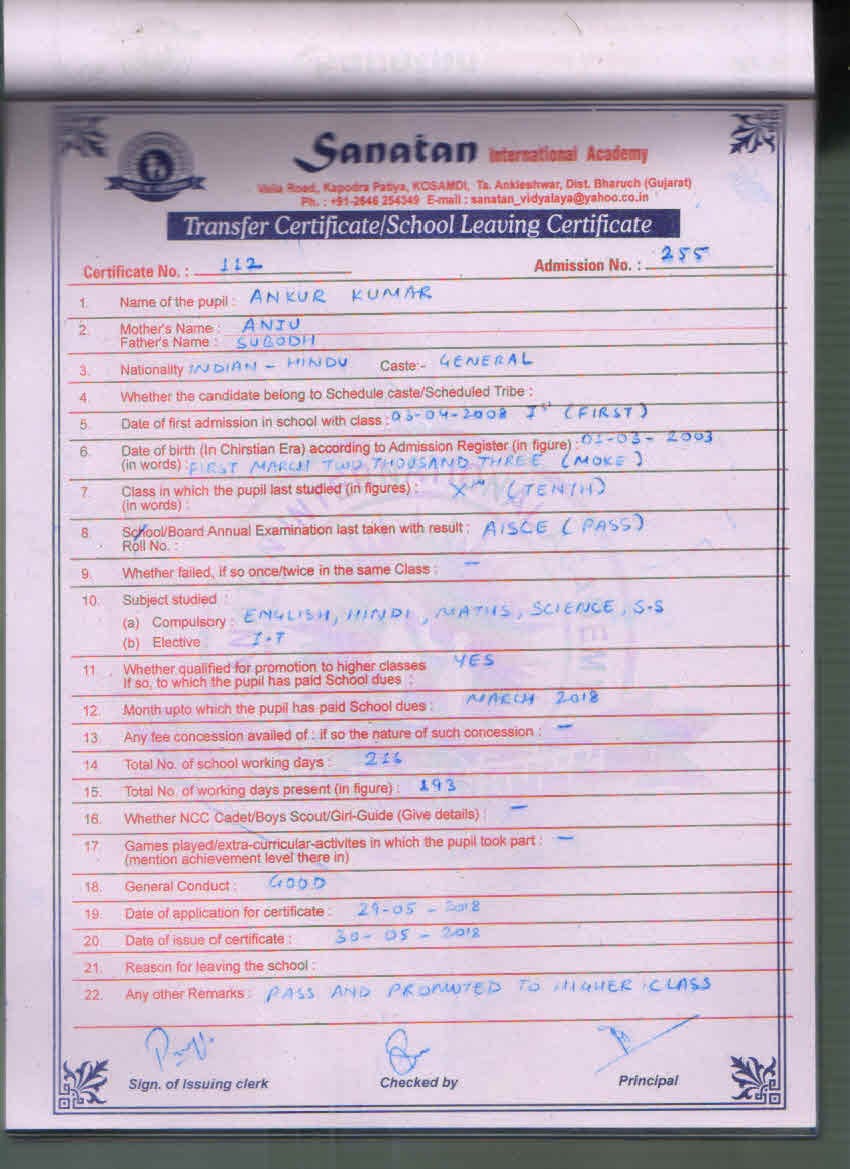 Sanatan International Academy
Valia Road, Kapodra Patiya, KOSAMDI, Ta. Ankleshwar, Dist. Bharuch (Gujarat)
Ph. : +91-2646 254349 E-mail : sanatan_vidyalaya@yahoo.co.in
Transfer Certificate/School Leaving Certificate
Certificate No. : 112 Admission No. : 255
1. Name of the pupil : ANKUR KUMAR
2. Mother's Name : ANJU
Father's Name : SUBODH
3. Nationality INDIAN - HINDU Caste:- GENERAL
4. Whether the candidate belong to Schedule caste/Scheduled Tribe :
5. Date of first admission in school with class : 03-04-2008 Ist (FIRST)
6. Date of birth (In Chirstian Era) according to Admission Register (in figure) : 01-03-2003
(in words) : FIRST MARCH TWO THOUSAND THREE (MOKE)
7. Class in which the pupil last studied (in figures) : Xth (TENTH)
(in words) :
8. School/Board Annual Examination last taken with result : AISCE (PASS)
Roll No. :
9. Whether failed, if so once/twice in the same Class : -
10. Subject studied :
(a) Compulsory : ENGLISH, HINDI, MATHS, SCIENCE, S.S
(b) Elective : I.T
11. Whether qualified for promotion to higher classes YES
If so, to which the pupil has paid School dues :
12. Month upto which the pupil has paid School dues : MARCH 2018
13. Any fee concession availed of : if so the nature of such concession : -
14. Total No. of school working days : 216
15. Total No. of working days present (in figure) : 193
16. Whether NCC Cadet/Boys Scout/Girl-Guide (Give details) : -
17. Games played/extra-curricular-activites in which the pupil took part : -
(mention achievement level there in)
18. General Conduct : GOOD
19. Date of application for certificate : 29-05-2018
20. Date of issue of certificate : 30-05-2018
21. Reason for leaving the school :
22. Any other Remarks : PASS AND PROMOTED TO HIGHER CLASS
Sign. of Issuing clerk Checked by Principal